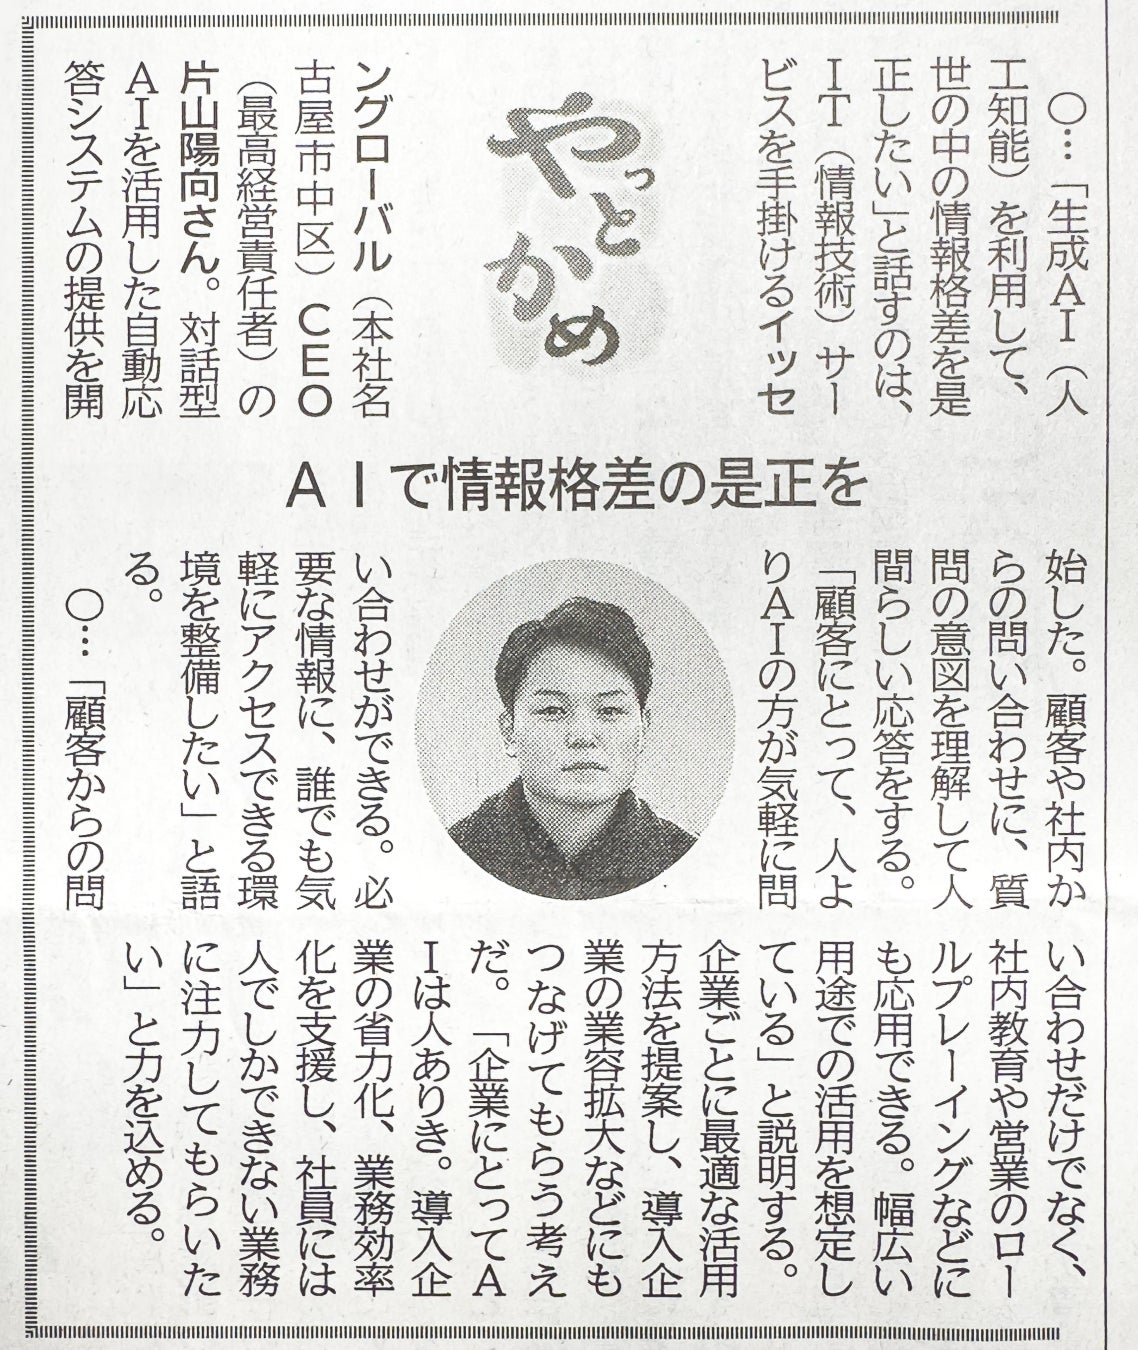 やっとかめ
AIで情報格差の是正を
〇…「生成AI(人
工知能)を利用して、
世の中の情報格差を是
正したい」と話すのは、
IT(情報技術)サー
ビスを手掛けるイッセ
ングローバル(本社名
古屋市中区)CEO
(最高経営責任者)の
片山陽向さん。対話型
AIを活用した自動応
答システムの提供を開
始した。顧客や社内か
らの問い合わせに、質
問の意図を理解して人
間らしい応答をする。
「顧客にとって、人よ
りAIの方が気軽に問
い合わせができる。必
要な情報に、誰でも気
軽にアクセスできる環
境を整備したい」と語
る。
〇…「顧客からの問
い合わせだけでなく、
社内教育や営業のロー
ルプレーイングなどに
も応用できる。幅広い
用途での活用を想定し
ている」と説明する。
企業ごとに最適な活用
方法を提案し、導入企
業の業容拡大などにも
つなげてもらう考え
だ。「企業にとってA
Iは人ありき。導入企
業の省力化、業務効率
化を支援し、社員には
人でしかできない業務
に注力してもらいた
い」と力を込める。